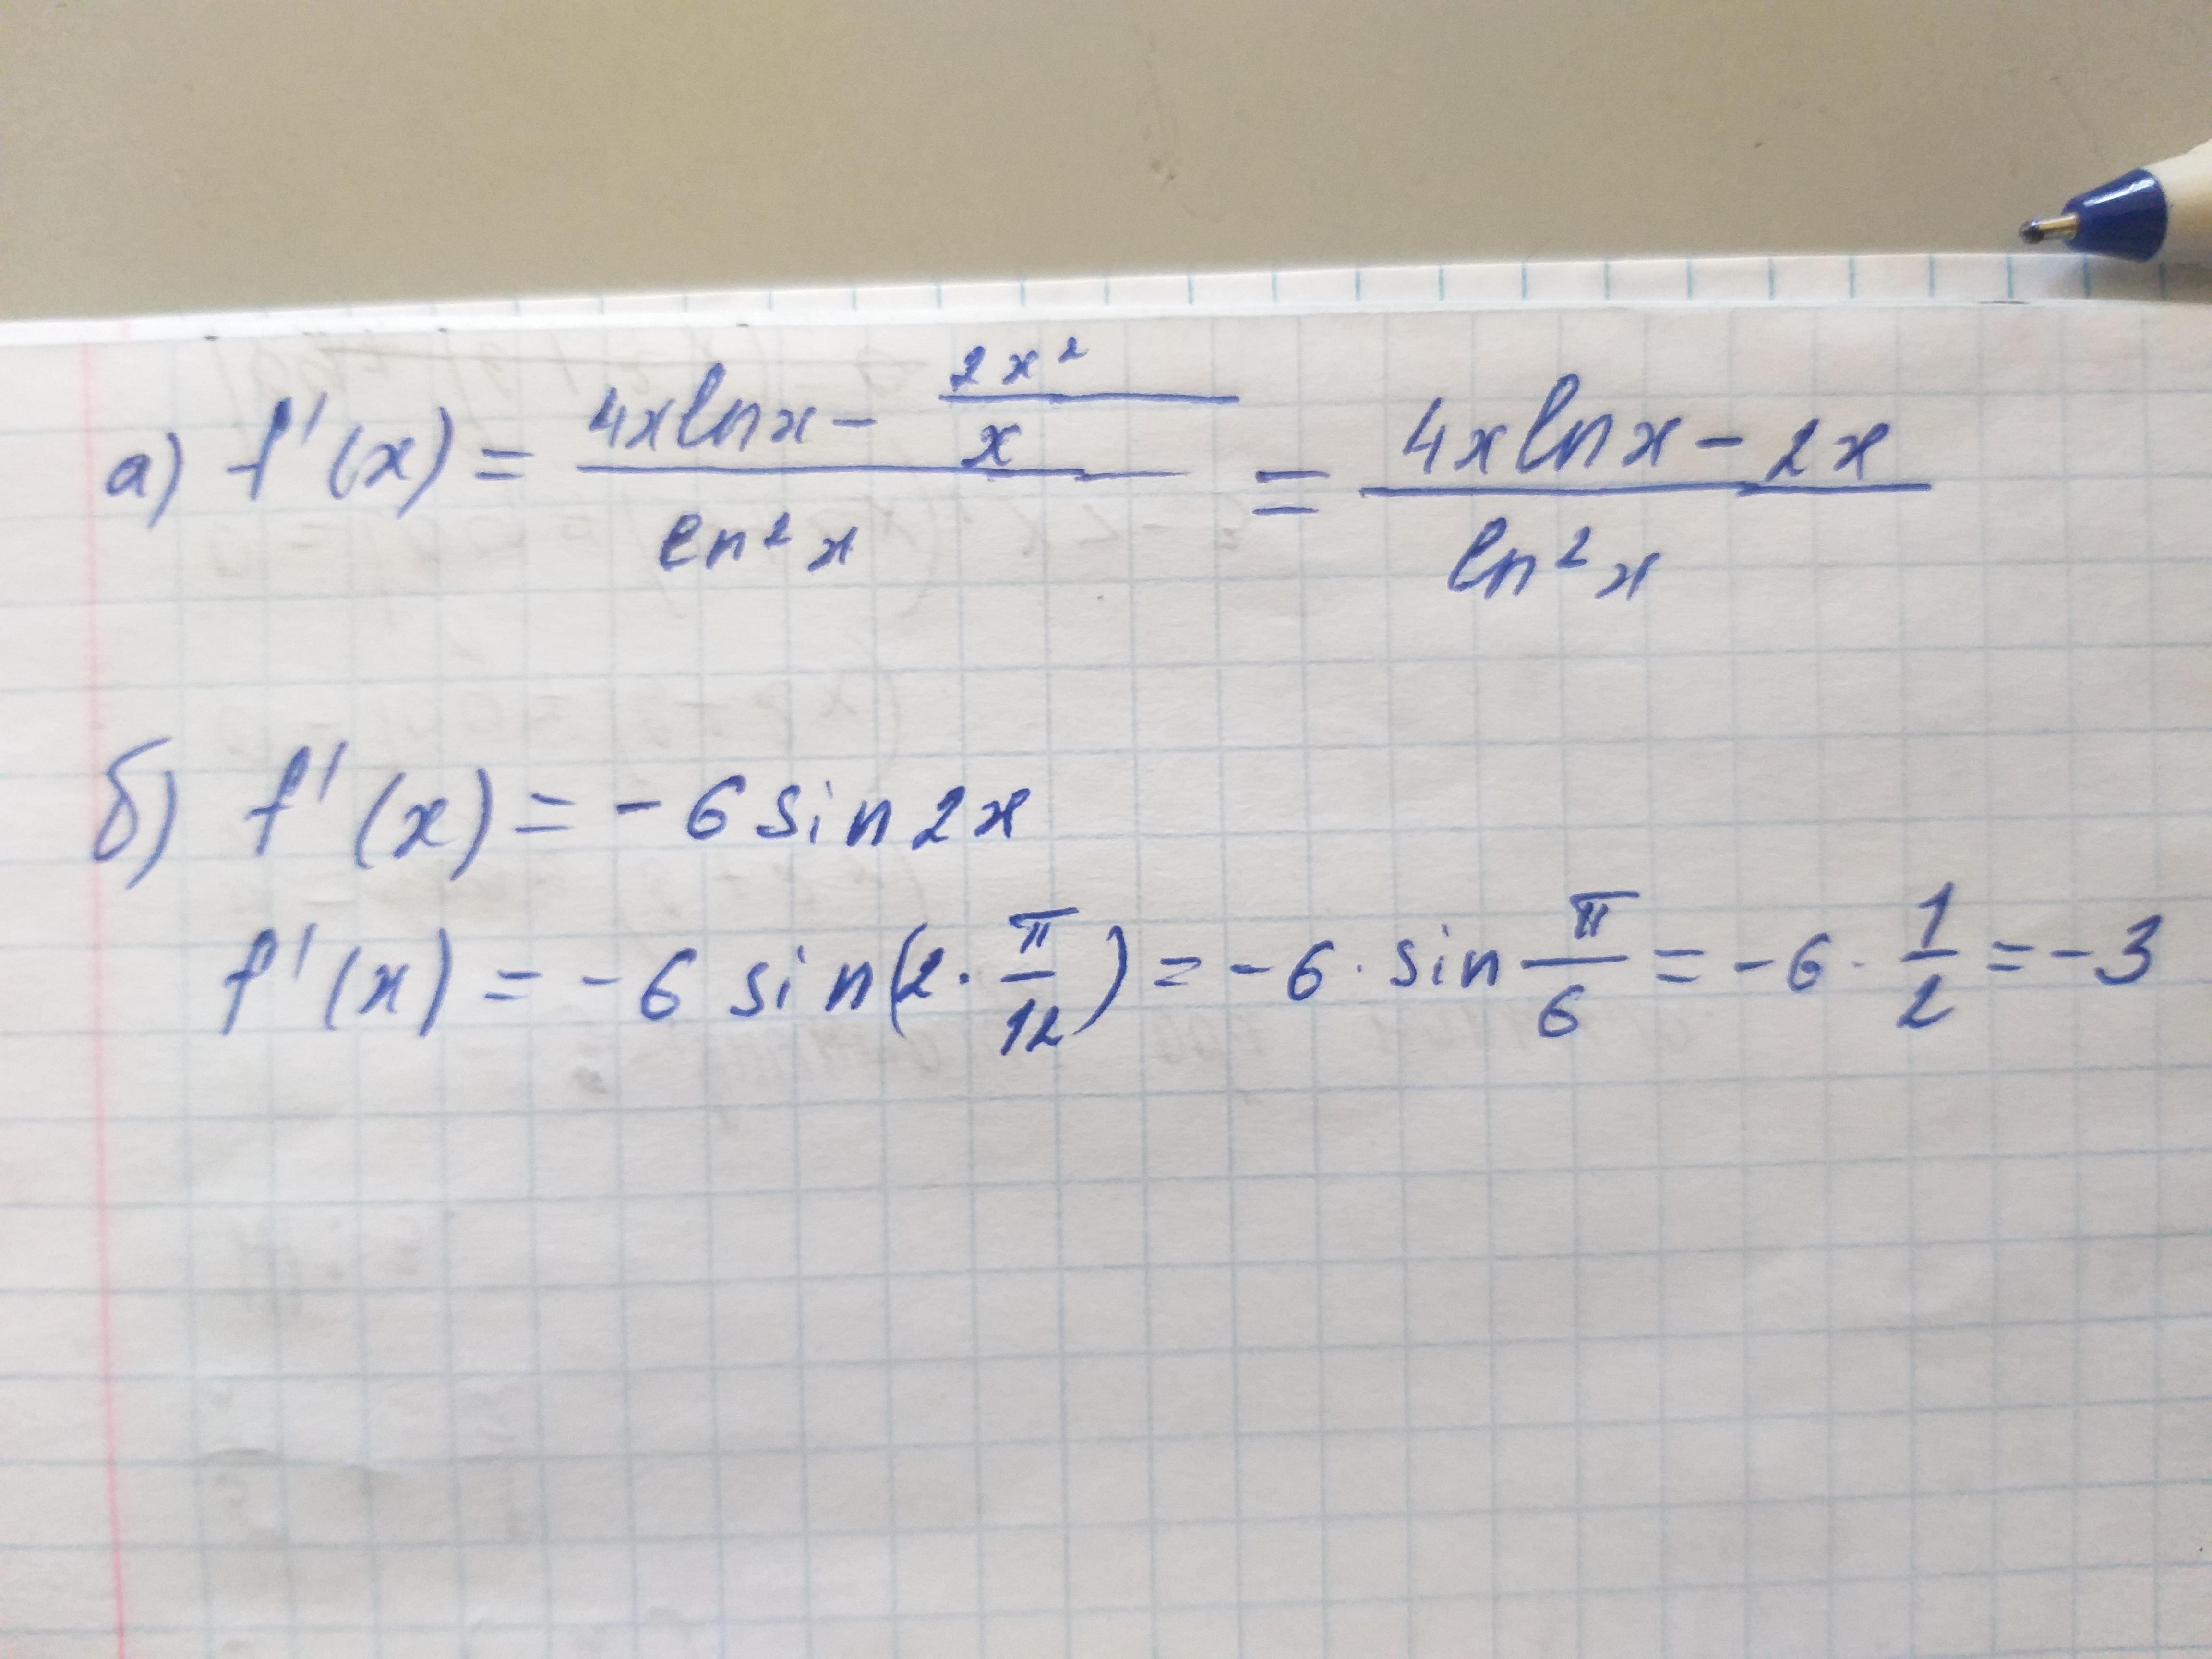 а) f'(x) = (4x ln x − 2x²/x) / ln² x = (4x ln x − 2x) / ln² x
б) f'(x) = − 6 sin 2x
f'(x) = − 6 sin(2 · π/12) = − 6 · sin π/6 = − 6 · 1/2 = − 3